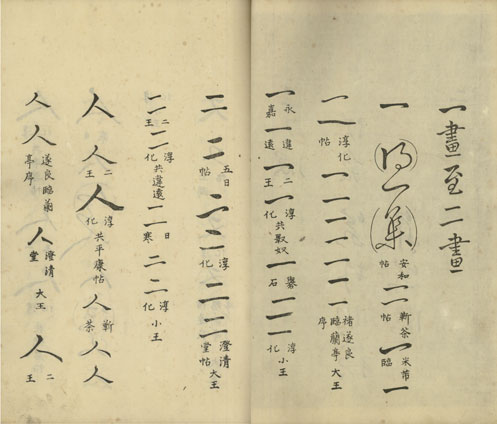 一畫至二畫
一 得一集 安和帖 二 新茶帖 一 米芾臨 一
一 淳化帖 一 一 一 一 一 褚遂良臨蘭亭序 大王
一 永嘉 一 遠 一 二王 一 淳化 共 奴 一 石 一 一 淳化 小王
二 二 五日帖 二 二 淳化 二 三 澄清堂帖 大王
二 二王 二 淳化 共違遠 二 日寒 二 二 淳化 小王
人 人 二王 人 淳化 共平康帖 人 新茶 人 人
人 人 遂良臨蘭亭序 人 澄清堂 大王 人 二王